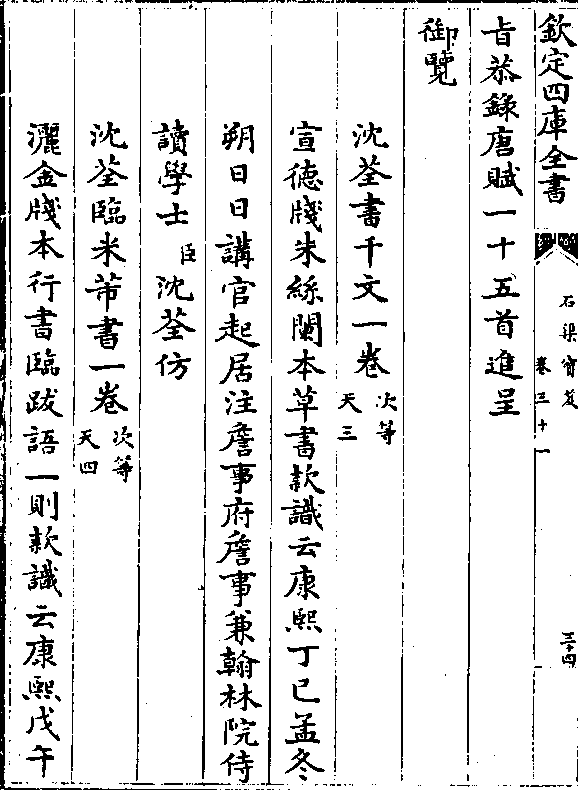 欽定四庫全書
石渠寶笈
卷三十一
三十四
旨恭錄唐賦一十五首進呈
御覽
沈荃書千文一卷 次等 天三
宣德牋朱絲闌本草書款識云康熙丁巳孟冬
朔日日講官起居注詹事府詹事兼翰林院侍
讀學士臣沈荃仿
沈荃臨米芾書一卷 次等 天四
灑金牋本行書臨跋語一則款識云康熙戊午